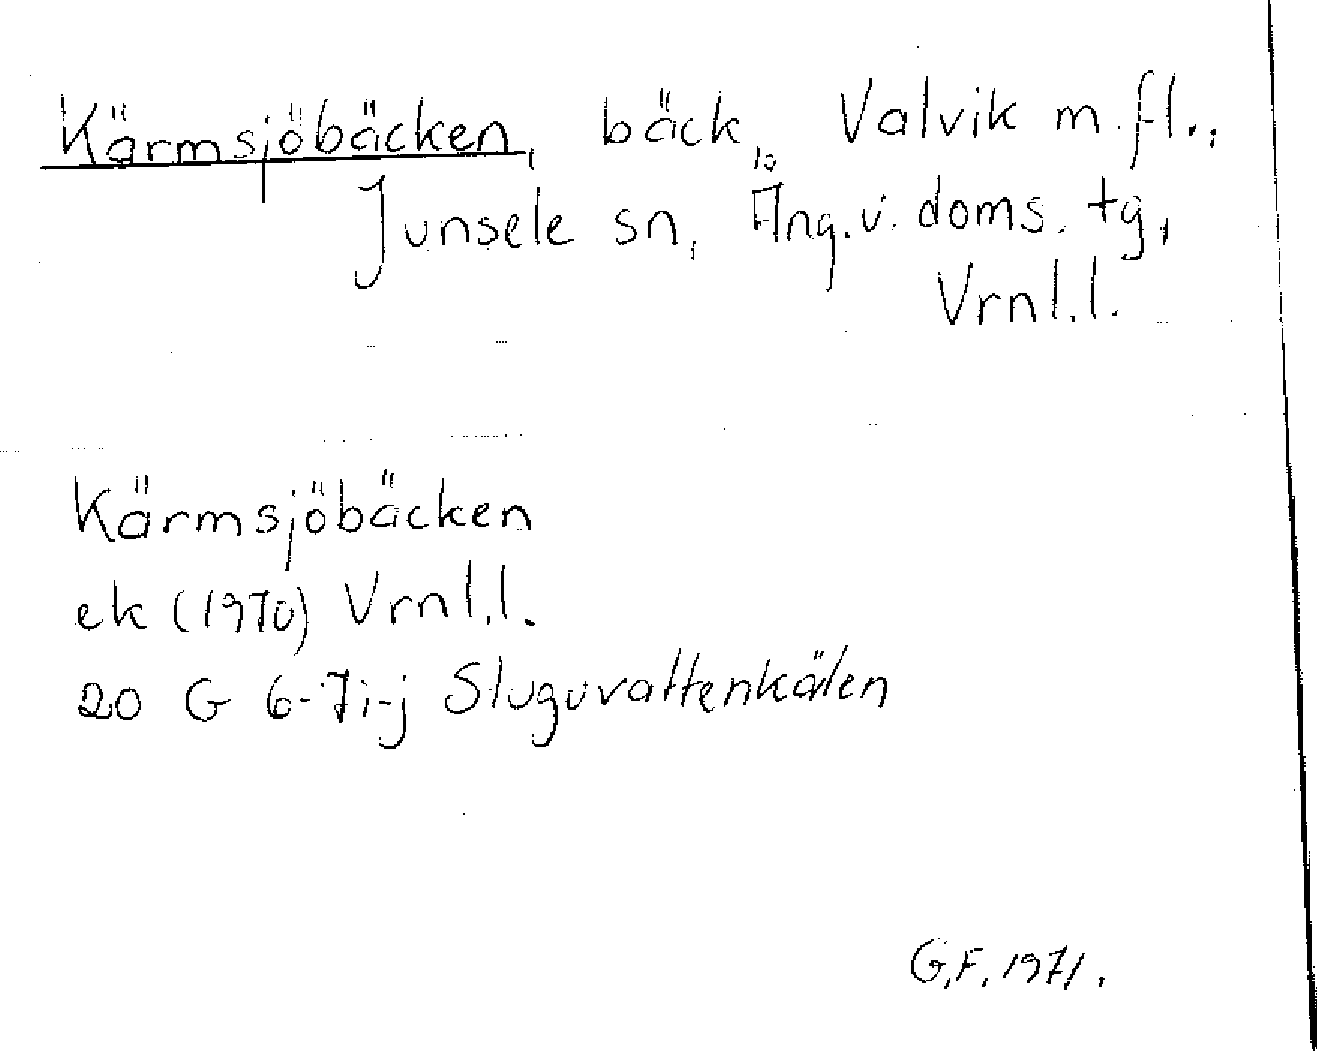 Kärmsjöbäcken, bäck, Valvik m.fl.,
Junsele sn, Ång.v. doms. tg,
Vrnl.l.
Kärmsjöbäcken
ek (1970) Vrnl.l.
20 G 6-7i-j Sluguvattenkälen
G.F. 1971.